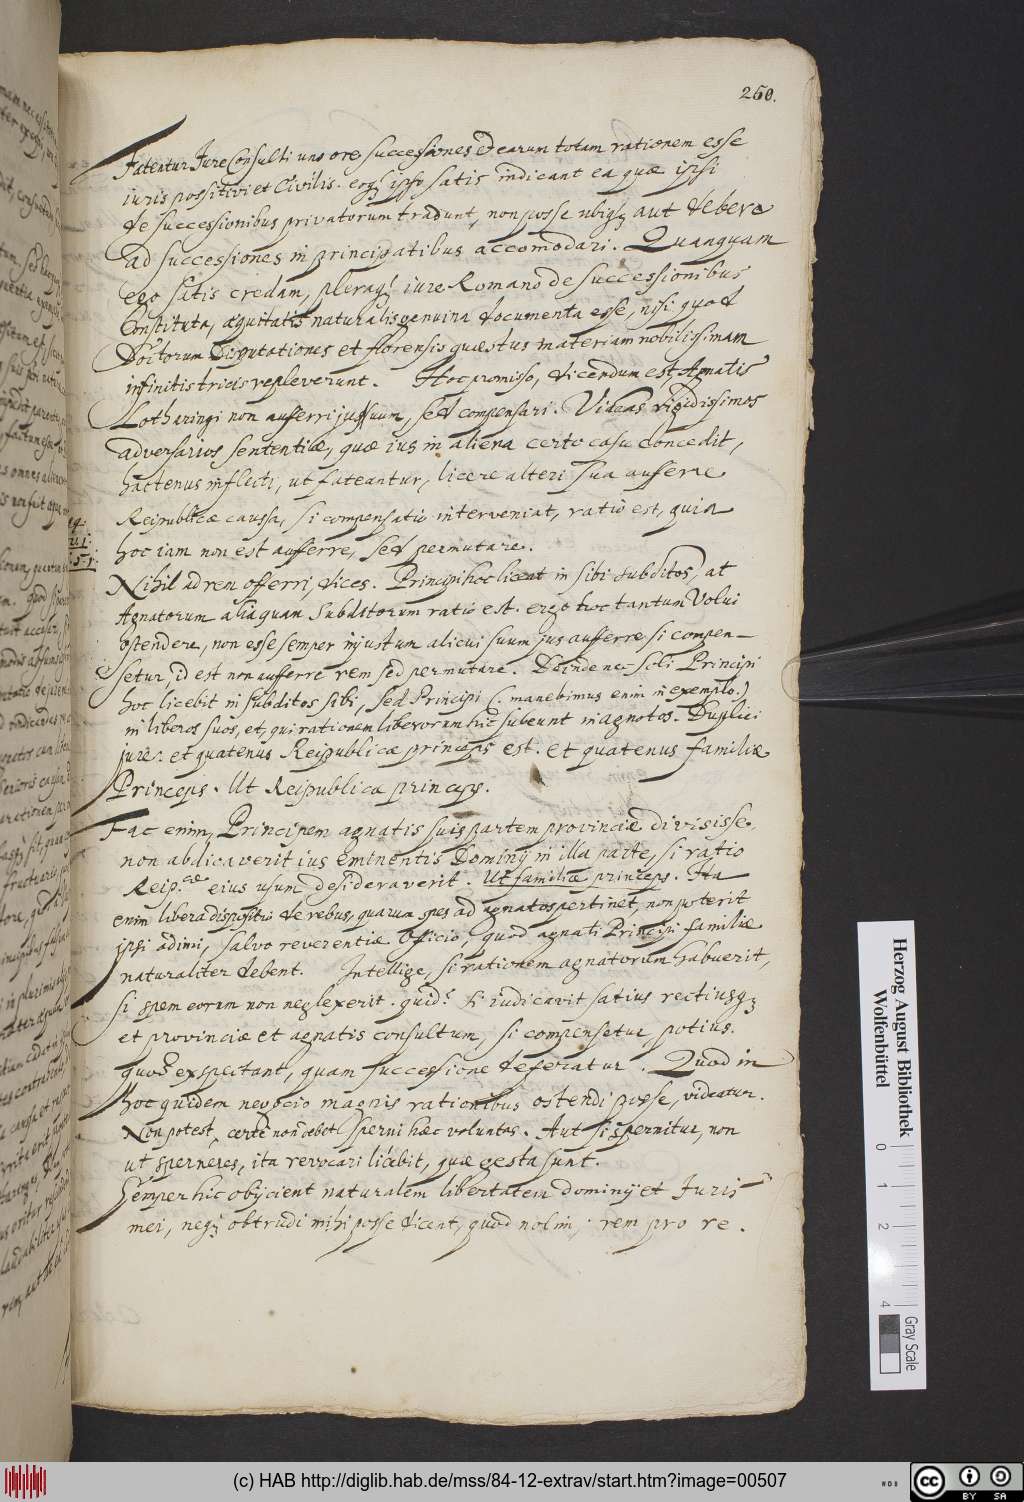 260.
Fatentur Jure Consulti uno ore successiones et earum totam rationem esse
iuris possitivi et Civilis. eoq; ipso satis indicant ea quæ ipsi
de successionibus privatorum tradunt, non posse ubiq; aut debere
ad successiones in principatibus accomodari. Quanquam
ego satis credam, pleraq; iure Romano de successionibus
Constituta, æquitatis naturalis genuina documenta esse, nisi quod
Doctorum Disputationes et florensis quæstus materiam nobilissimam
infinitis tricis repleverunt. Hoc promisso, dicendum est, Agnatis
Lotharingi non aufferri jus suum, sed compensari. Videas rigidissimos
adversarios sententiæ, quæ ius in aliena certo casu concedit,
hactenus inflecti, ut fateantur, licere alteri sua aufferre
Reipublicæ caussa, si compensatio interveniat, ratio est, quia
hoc iam non est aufferre, sed permutare.
Nihil ad rem offerri, dices. Principi hoc liceat in sibi subditos, at
Agnatorum alia quam subditorum ratio est. ergo hoc tantum volui
ostendere, non esse semper injustum alicui suum jus aufferre si compen-
setur, id est non aufferre rem sed permutare. Deinde nec soli Principi
hoc licebit in subditos sibi, sed Principi (manebimus enim in exemplo)
in liberos suos, et, qui rationem liberorum hic subeunt in agnatos. Duplici
jure. et quatenus Reipublicæ princeps est. et quatenus familiæ
Princeps. Ut Reipublicæ princeps.
Fac enim, Principem agnatis suis partem provinciæ divisisse,
non abdicaverit ius eminentis Dominij in illa parte, si ratio
Reip.cæ eius usum desideraverit. Ut familiæ princeps. Ita
enim libera dispositio de rebus, quarum spes ad agnatos pertinet, non poterit
ipsi adimi, salvo reverentiæ officio, quod agnati Principi familiæ
naturaliter debent. Intellige, si rationem agnatorum habuerit,
si spem eorum non neglexerit. quid? si iudicavit satius rectiusq;
et provinciæ et agnatis consultum, si compensetur, potius.
quod exspectant, quam successione deferatur. Quod in
hoc quidem negocio magnis rationibus ostendi posse, videatur.
Non potest, certe non debet sperni hæc voluntas. Aut si spernitur, non
ut sperneres, ita revocari licebit, quæ gesta sunt.
Semper hic obijcient naturalem libertatem dominij et Juris
mei, neq; obtrudi mihi posse dicent, quod nolim, rem pro re.
Herzog August Bibliothek
Wolfenbüttel
0 1 2 4
Gray Scale
(c) HAB http://diglib.hab.de/mss/84-12-extrav/start.htm?image=00507
CC BY SA